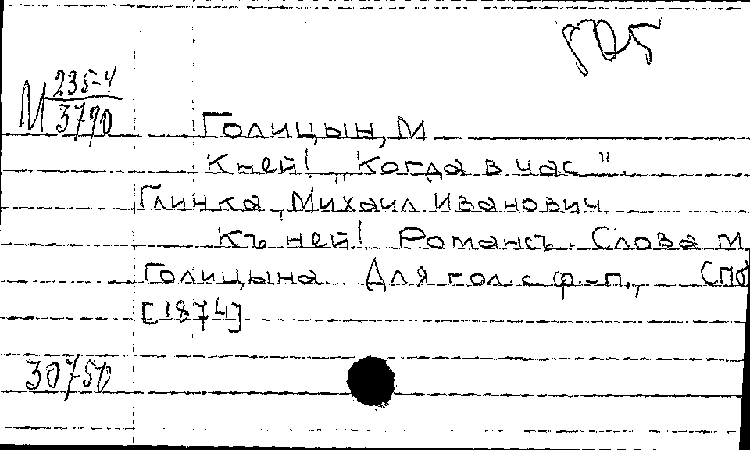 505
М 235-4
3790
Голицын, М
К ней! "Когда в час".
Глинка, Михаил Иванович
Къ ней! Романсъ. Слова М.
Голицына. Для гол. с ф-п., СПб
[1874]
30750